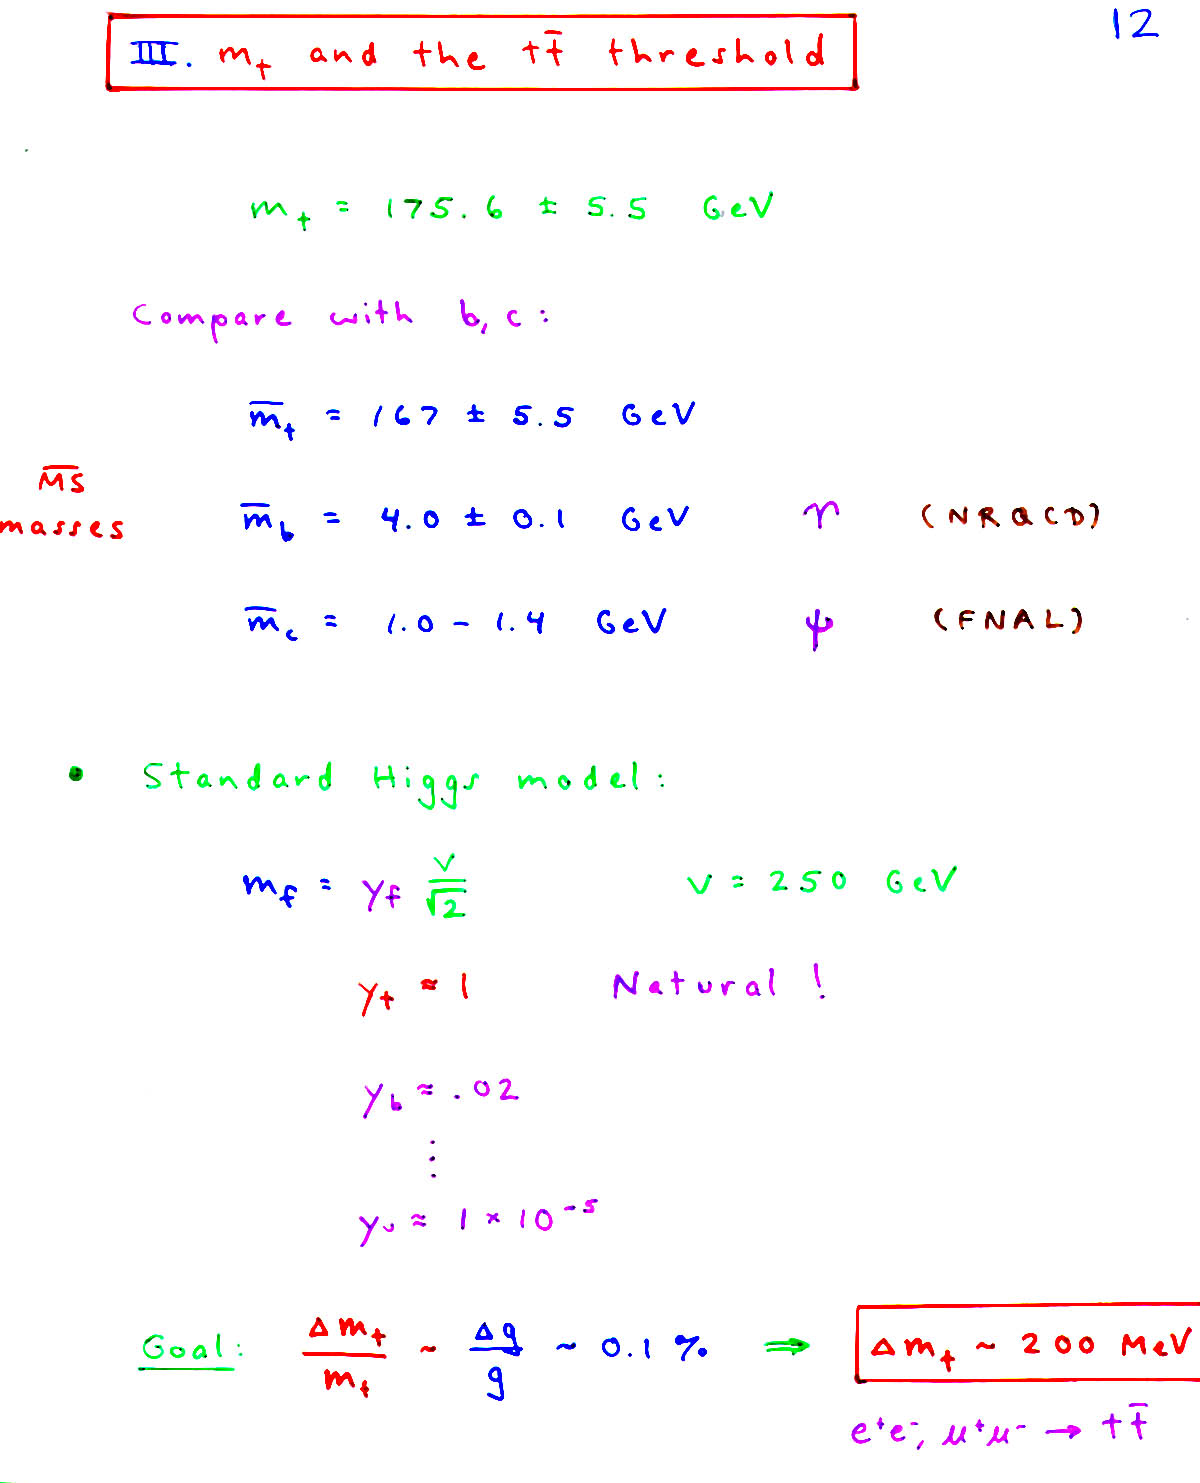 12
III. m_t and the tt̄ threshold
m_t = 175.6 ± 5.5 GeV
Compare with b, c:
m̅_t = 167 ± 5.5 GeV
M̅S̅
masses
m̅_b = 4.0 ± 0.1 GeV ϒ (NRQCD)
m̅_c = 1.0 - 1.4 GeV ψ (FNAL)
• Standard Higgs model:
m_f = y_f v/√2 v = 250 GeV
y_t ≈ 1 Natural !
y_b ≈ .02
⋮
y_u ≈ 1 × 10^-5
Goal: Δm_t/m_t ~ Δg/g ~ 0.1 % ⇒ Δm_t ~ 200 MeV
e⁺e⁻, μ⁺μ⁻ → tt̄